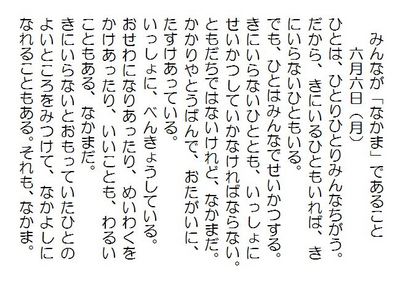 みんなが「なかま」であること
六月六日（月）
ひとは、ひとりひとりみんなちがう。
だから、きにいるひともいれば、き
にいらないひともいる。
でも、ひとはみんなでせいかつする。
きにいらないひととも、いっしょに
せいかつしていかなければならない。
ともだちではないけれど、なかまだ。
かかりやとうばんで、おたがいに、
たすけあっている。
いっしょに、べんきょうしている。
おせわになりあったり、めいわくを
かけあったり、いいことも、わるい
こともある、なかまだ。
きにいらないとおもっていたひとの
よいところをみつけて、なかよしに
なれることもある。それも、なかま。